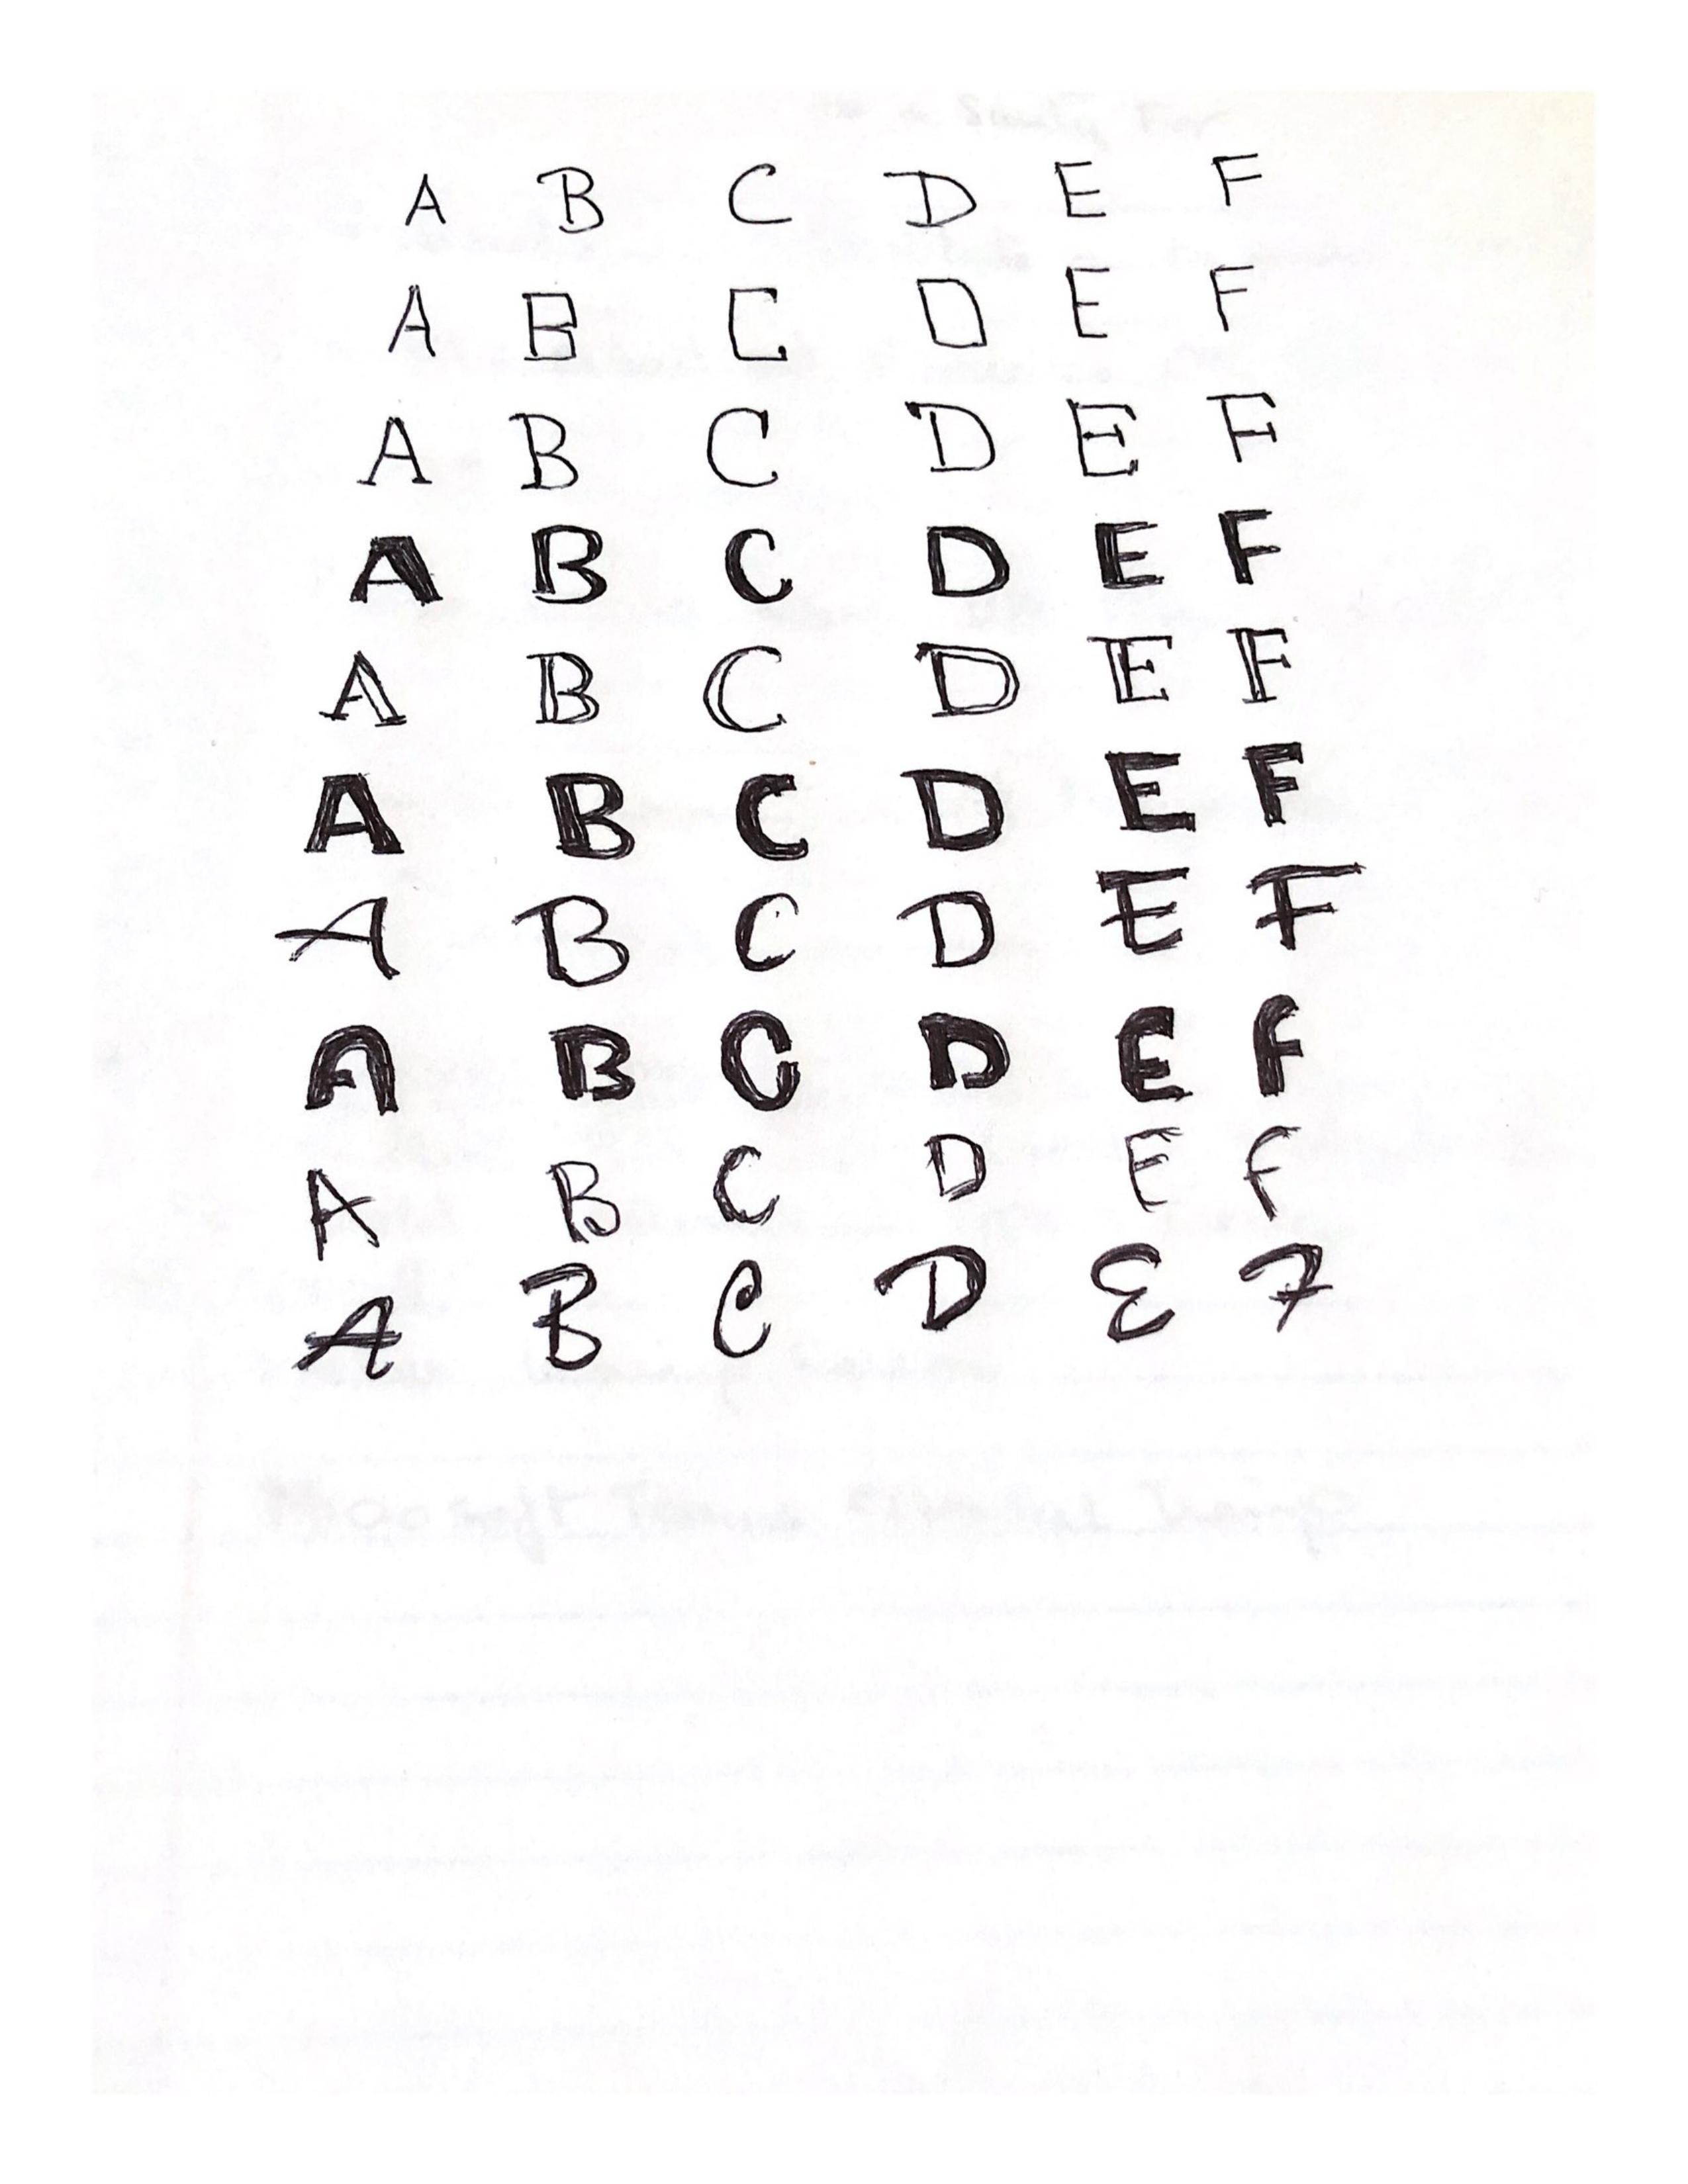 A B C D E F
A B C D E F
A B C D E F
A B C D E F
A B C D E F
A B C D E F
A B C D E F
A B C D E F
A B C D E F
A B C D E F